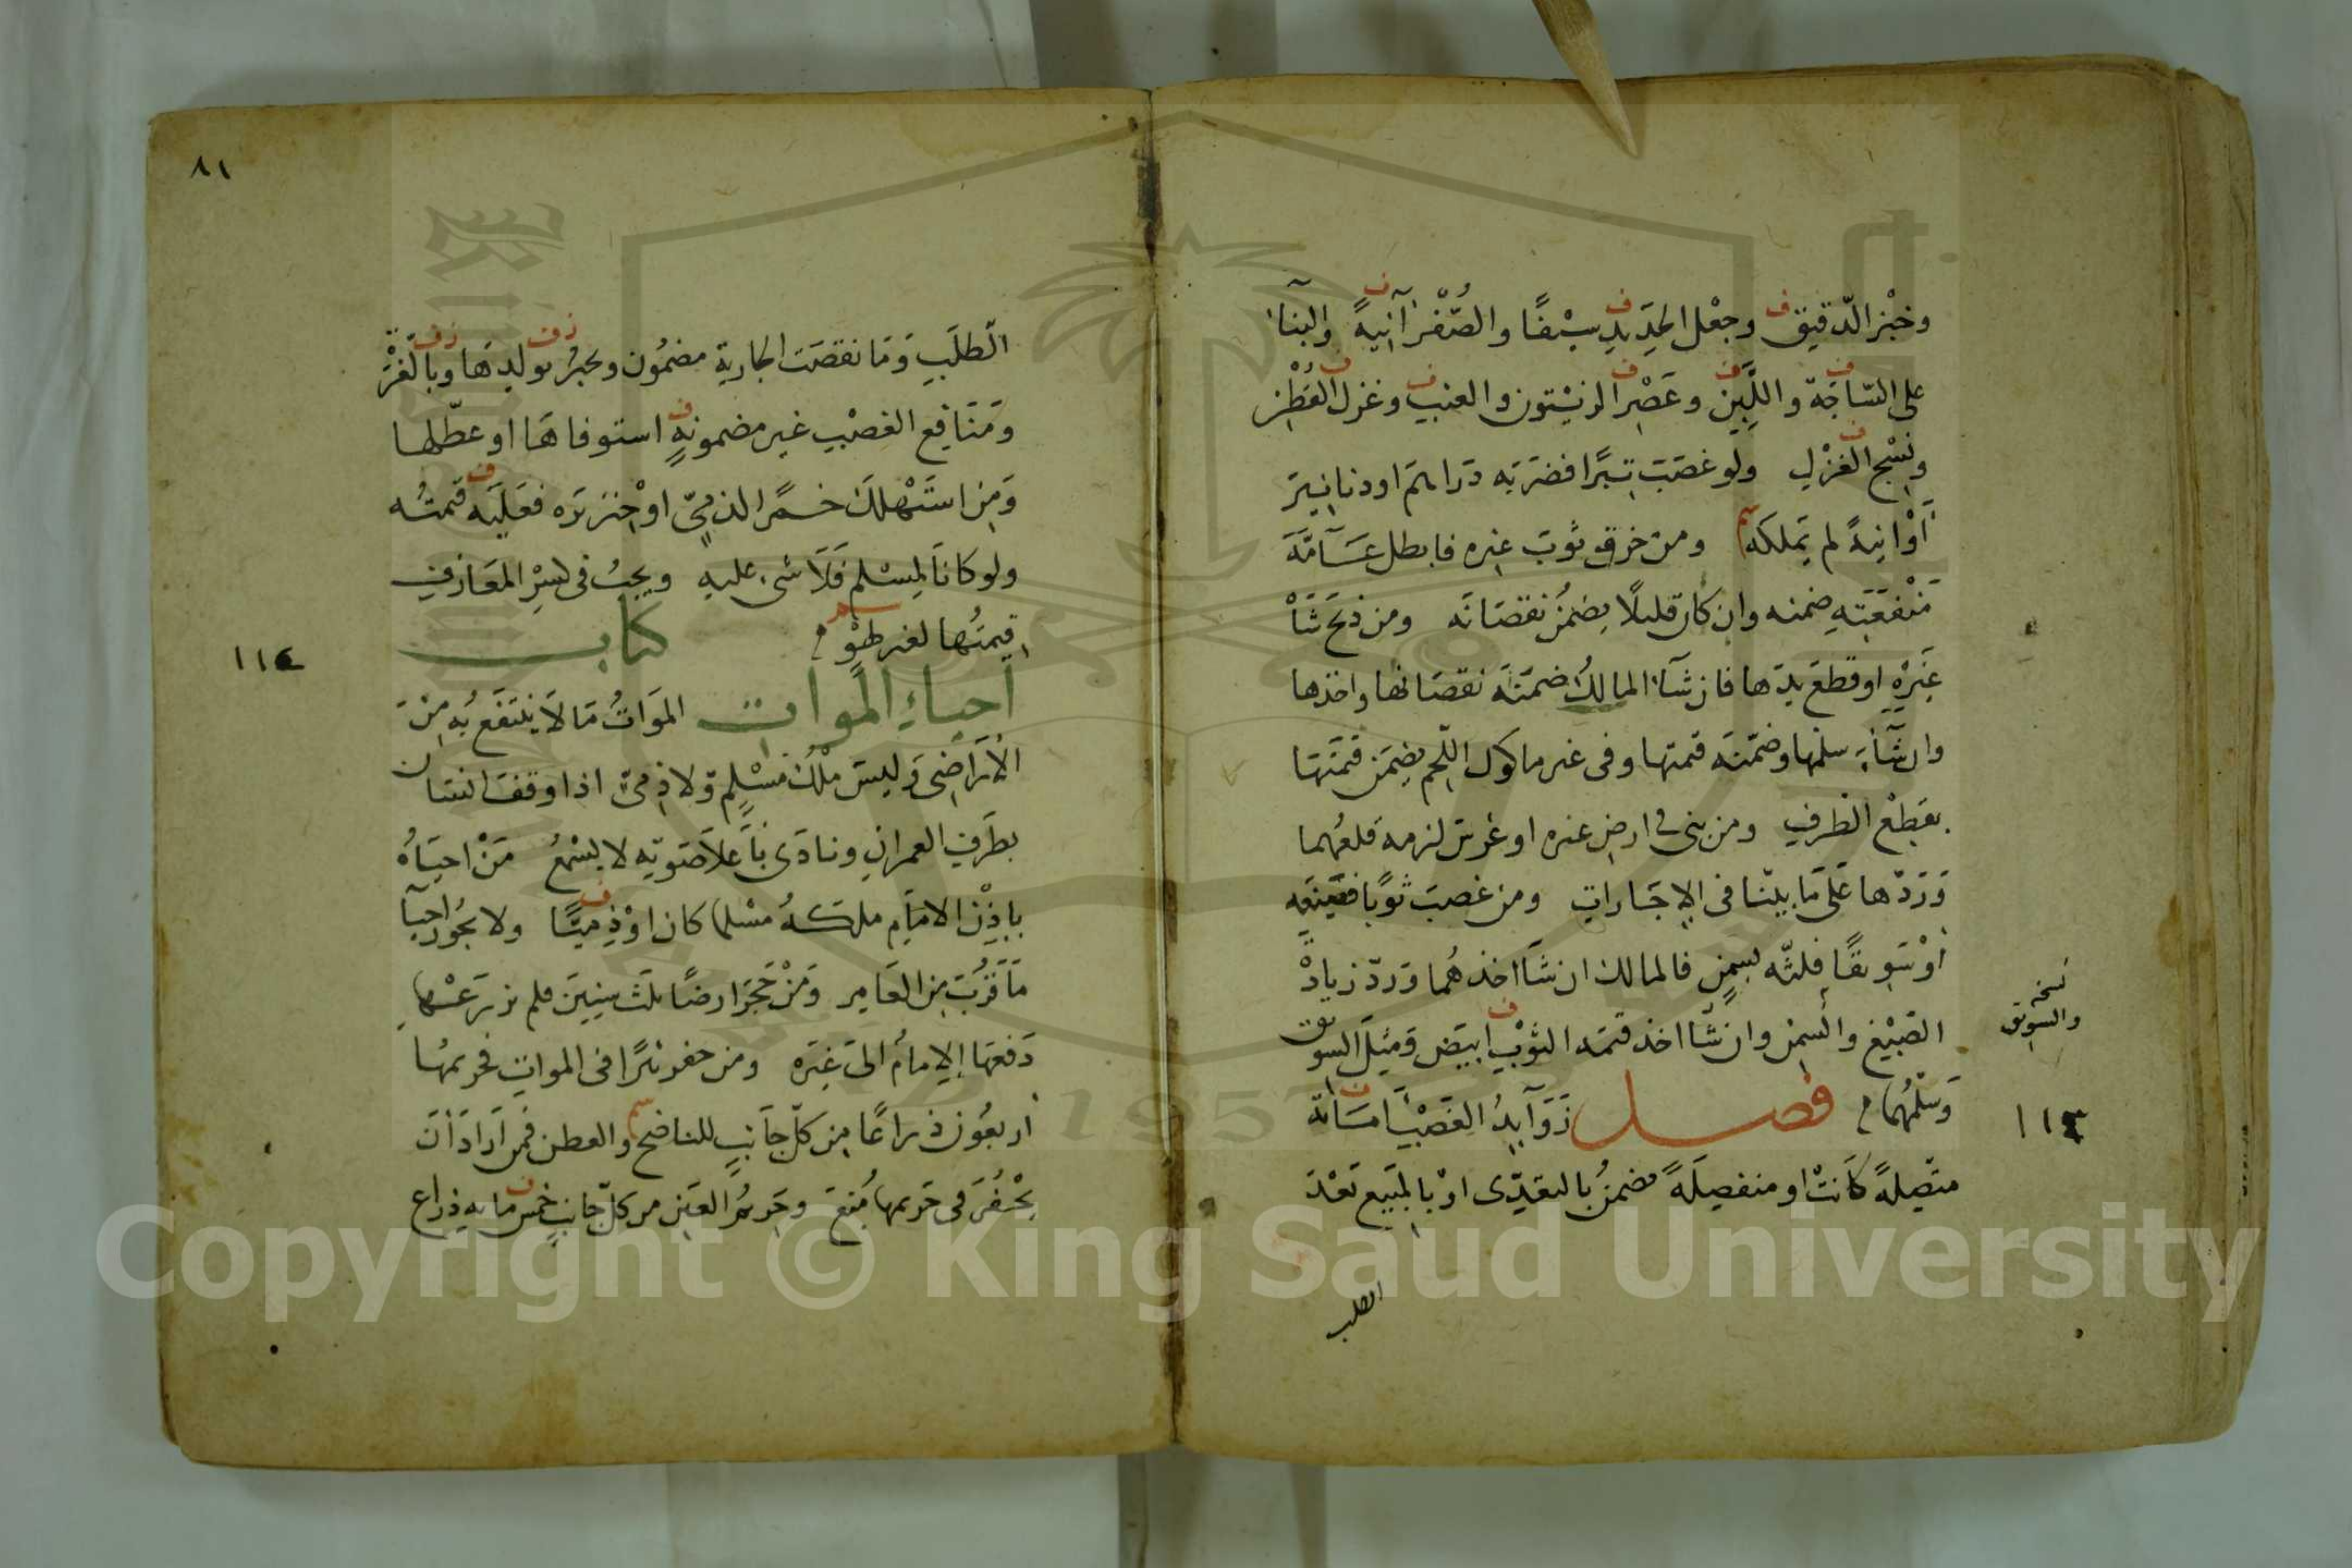 وخبز الدّقيق وجعْل الحَدِيدِ سيْفًا والصُّفْر آنيةً والبنآء
على السّاجَة واللَّبِن وعَصْر الزيْتون والعنب وغزل القُطْن
ونَسْج الغزْلِ ولو غصَبَ تبرًا فضرَبَه دَرَاهمَ او دنانيرَ
أوْ آنيةً لم يَملكَه ومن خرق ثوبَ غيره فابطل عَآمَّةَ
مَنْفَعَتِهِ ضمنه وان كان قليلًا يضمنُ نقصَانَه ومن ذبَحَ شَاةَ
غَيْرِهِ او قطعَ يدَها فان شآءَ المالكُ ضمنَه نقصَانها واخذها
وان شَآءَ سلّمها وضمّنه قيمتها وفى غير ماكول اللّحم يضمَن قيمَتهَا
بقطْع الطرفِ ومن بنى فى ارضِ غيره او غرسَ لزمه قلعُهما
وَرَدّها عَلَى مَا بيّنّا فى الإجَاراتِ ومن غصبَ ثوبًا فصَبغَه
أوْ سَوِيقًا فلتّه بسمنٍ فالمالك ان شَا اخذهُما وَردّ زيادةَ
الصّبْغِ والسمن وان شَّا اخذ قيمَه الثوْبِ ابيَض وَمثلَ السويق
وَسَلّمهُما فصل زَوَآيدُ الغَصْب امَانة
متّصلةً كَانتْ او منفصلَةً مضمنُ بالتعدّى اوْ بالمَبيع بَعْدَ
الطلب
نسخه
والسويق
١١٣
٨١
الطّلَبِ وَمَا نقصَت الجارية مضمُون ويجبرُ بولدِهَا وبالغُرّة
وَمَنَافِع الغصْبِ غير مضمونةٍ استوفاهَا او عطّلها
وَمَن استَهْلكَ خمرَ الذمىّ اوْ خنزيرَه فعَلَيه قيمتُه
ولو كانَا لمسْلم فَلَا شىء عليه ويجبُ فى كسرِ المعَازفِ
قيمتُها لغير لهْو كتاب
احياءِ الموات الموَاتُ مَا لاَ ينتفَع بُه مِنْ
الأرَاضى وَليسَ ملْكَ مُسْلِم وَلا ذمىّ اذا وقفَ انسَان
بطَرفِ العمران ونادَى بأَعلاَ صَوتِه لا يسْمعُ مَنْ احيَاهُ
باذِنْ الامَامِ ملكهُ مسْلما كان اوْ ذميًّا ولا يجُوز احيآ
مَا قَرُبَ مِن العَامِر وَمَنْ حَجَرَ ارضًا ثلثَ سِنينَ فلم يزرَعْها
دَفعهَا الإمامُ الىَ غيره ومن حفر بئرًا فى المواتِ فحريمهُا
اربعُون ذراعًا مِن كلّ جَانبٍ للناضح والعطن فمن اَرَادَ أنْ
يحْفُرَ فى حَريمها مُنعَ وحَريمُ العَين من كلّ جانبٍ خمس مايه ذراع
١١٤
Copyright © King Saud University